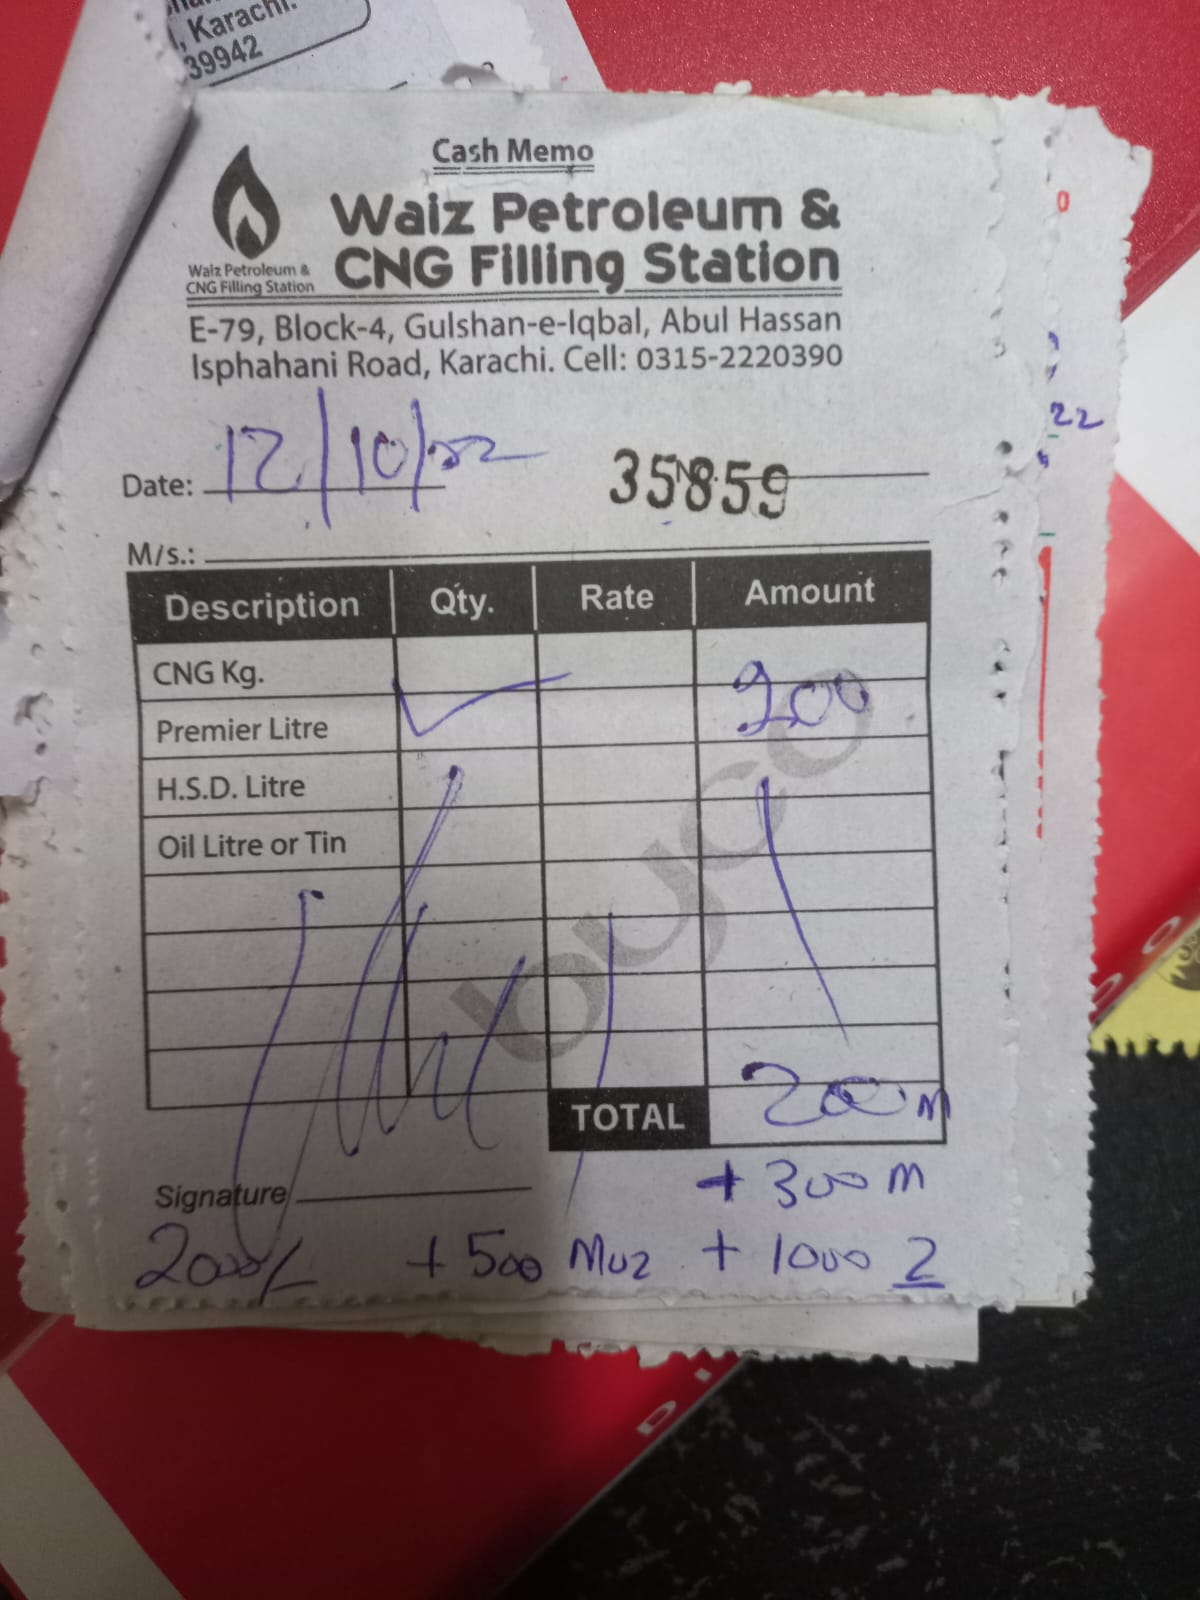 , Karachi.
39942
Cash Memo
Waiz Petroleum &
CNG Filling Station
Waiz Petroleum &
CNG Filling Station
E-79, Block-4, Gulshan-e-Iqbal, Abul Hassan
Isphahani Road, Karachi. Cell: 0315-2220390
Date: 12/10/22 35859
22
M/s.:
Description Qty. Rate Amount
CNG Kg.
Premier Litre 200
H.S.D. Litre
Oil Litre or Tin
byco
TOTAL 200 M
+ 300 M
Signature
2000/- + 500 Muz + 1000 2